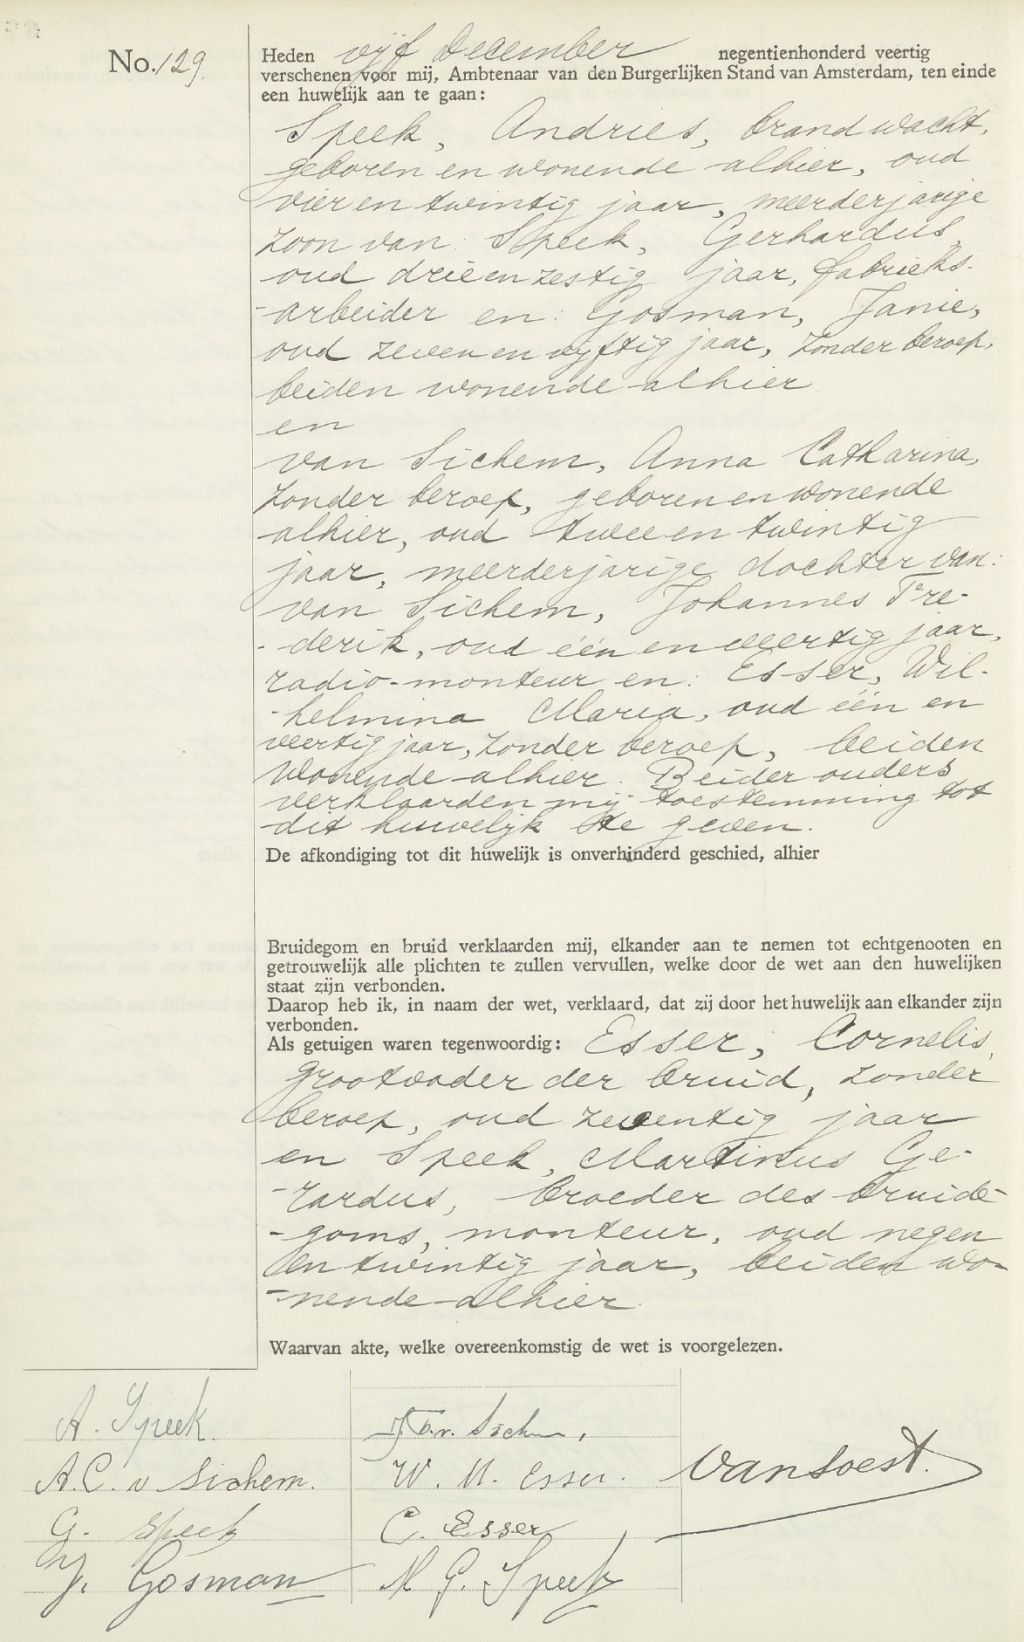 No. 129.
Heden vijf December negentienhonderd veertig
verschenen voor mij, Ambtenaar van den Burgerlijken Stand van Amsterdam, ten einde
een huwelijk aan te gaan:
Speek, Andries, brandwacht,
geboren en wonende alhier, oud
vier en twintig jaar, meerderjarige
zoon van: Speek, Gerhardus,
oud drie en zestig jaar, fabrieks-
-arbeider en: Gosman, Janie,
oud zeven en vijftig jaar, zonder beroep,
beiden wonende alhier
en
van Sichem, Anna Catharina,
zonder beroep, geboren en wonende
alhier, oud twee en twintig
jaar, meerderjarige dochter van:
van Sichem, Johannes Fre-
-derik, oud één en veertig jaar,
radio-monteur en: Esser, Wil-
-helmina Maria, oud één en
veertig jaar, zonder beroep, beiden
wonende alhier. Beider ouders
verklaarden mij toestemming tot
dit huwelijk te geven.
De afkondiging tot dit huwelijk is onverhinderd geschied, alhier
Bruidegom en bruid verklaarden mij, elkander aan te nemen tot echtgenooten en
getrouwelijk alle plichten te zullen vervullen, welke door de wet aan den huwelijken
staat zijn verbonden.
Daarop heb ik, in naam der wet, verklaard, dat zij door het huwelijk aan elkander zijn
verbonden.
Als getuigen waren tegenwoordig: Esser, Cornelis,
grootvader der bruid, zonder
beroep, oud zeventig jaar
en Speek, Martinus Ge-
-rardus, broeder des bruide-
-goms, monteur, oud negen
en twintig jaar, beiden wo-
-nende alhier.
Waarvan akte, welke overeenkomstig de wet is voorgelezen.
A. Speek.
A.C. v Sichem.
G. Speek
J. Gosman
J F v. Sichem,
W. M. Esser.
C. Esser
M G. Speek
van Soest.